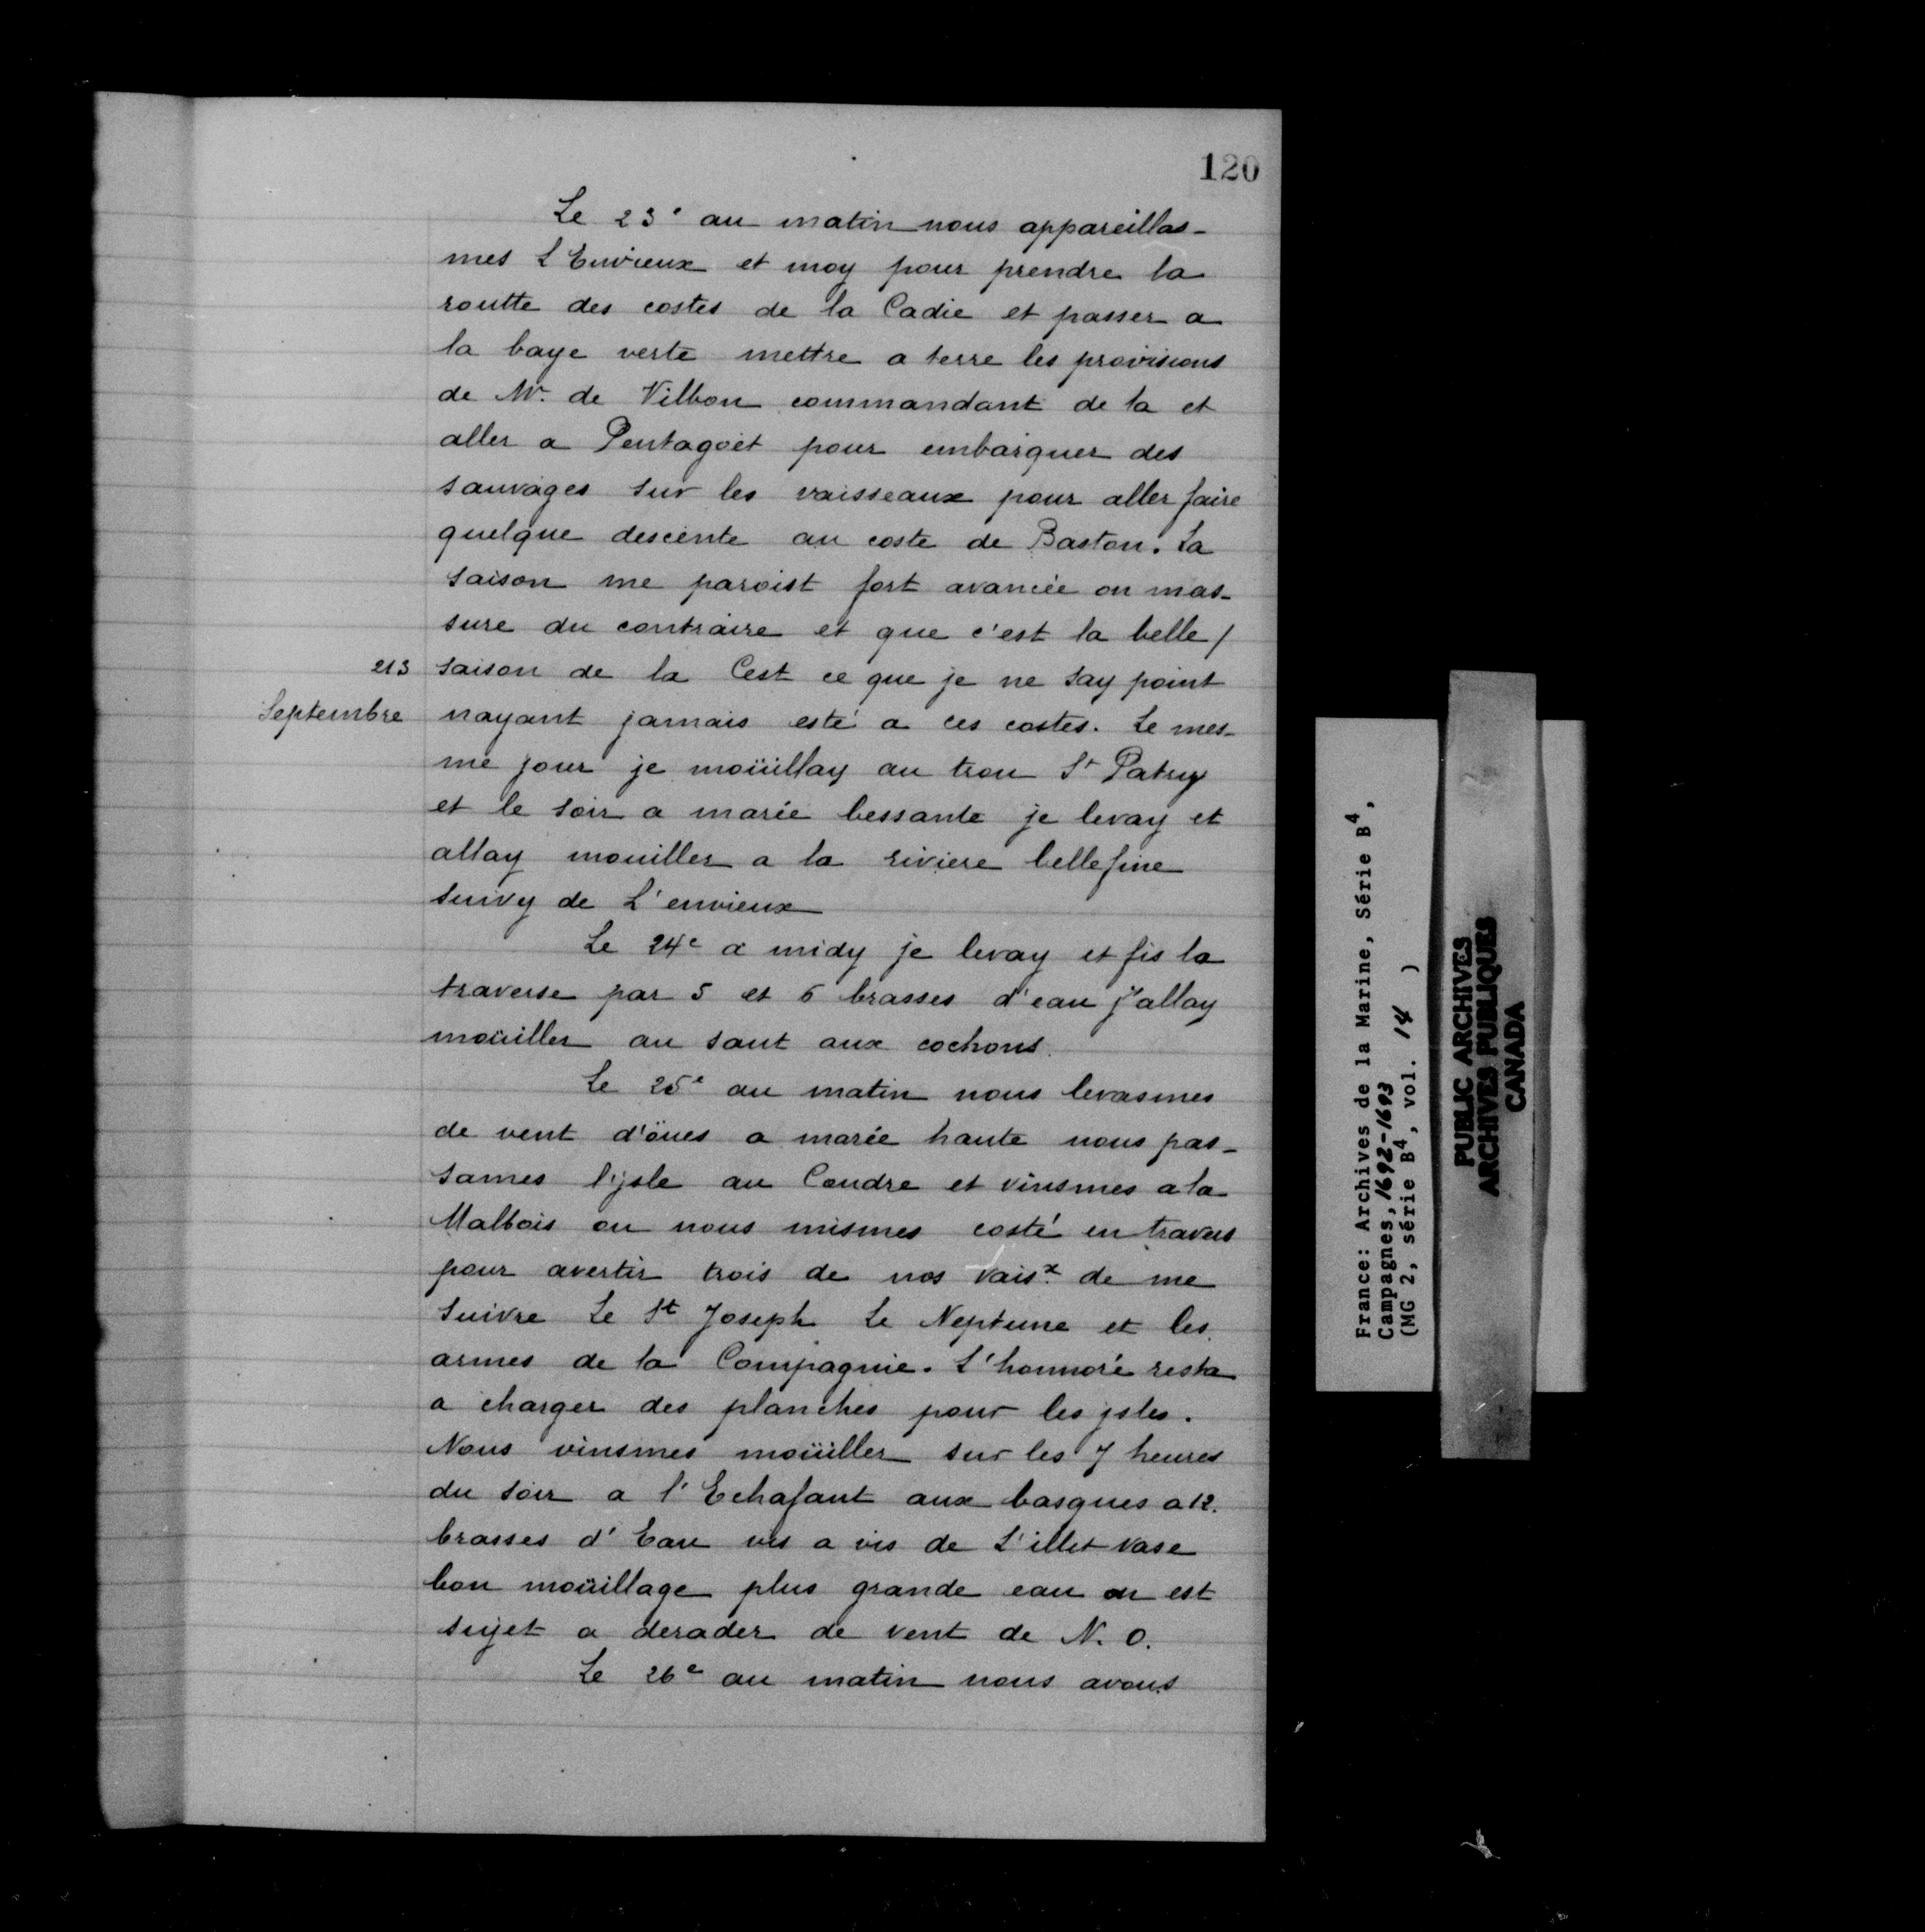 120
Le 23e au matin nous appareillas-
mes L'Envieux et moy pour prendre la
routte des costes de la Cadie et passer a
la baye verte mettre a terre les provisions
de Mr. de Vilbon commandant de la et
aller a Pentagoët pour embarquer des
sauvages sur les vaisseaux pour aller faire
quelque descente au coste de Baston. La
saison me paroist fort avancée on mas-
sure du contraire et que c'est la belle /
213 saison de la Cest ce que je ne say point
Septembre nayant jamais esté a ces costes. Le mes-
me jour je moüillay au trou St Patry
et le soir a marée bessante je levay et
allay mouiller a la riviere bellefine
suivy de L'envieux
Le 24e a midy je levay et fis la
traverse par 5 et 6 brasses d'eau j'allay
moüiller au saut aux cochons.
Le 25e au matin nous levasmes
de vent d'öues a marée haute nous pas-
sames l'isle au Coudre et vinsmes a la
Malbois ou nous mismes costé en travers
pour avertir trois de nos vaisx de me
suivre Le St Joseph Le Neptune et les
armes de la Compagnie. L'honnoré resta
a charger des planches pour les isles.
Nous vinsmes moüiller sur les 7 heures
du soir a l'Echafaut aux basques a 12.
brasses d'Eau vis a vis de L'illet vase
bon moüillage plus grande eau on est
sujet a derader de vent de N. O.
Le 26e au matin nous avons
France: Archives de la Marine, Série B4,
Campagnes, 1692-1693
(MG 2, série B4, vol. 14 )
PUBLIC ARCHIVES
ARCHIVES PUBLIQUES
CANADA